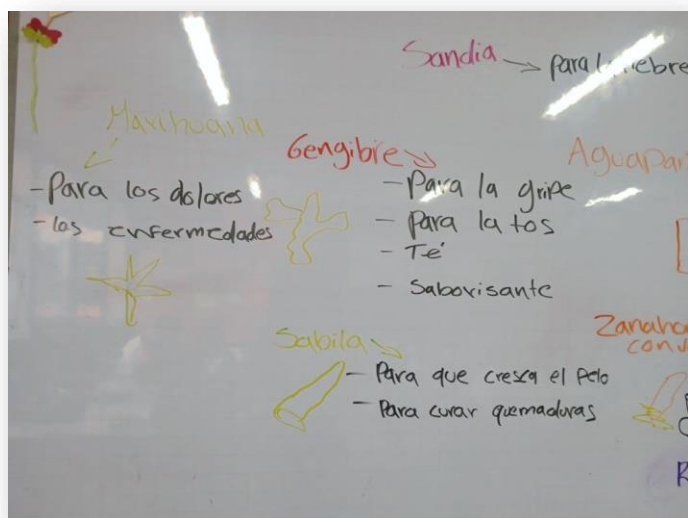 Sandia → para la fiebre
Marihuana
- Para los dolores
- las enfermedades
Gengibre
- Para la gripe
- Para la tos
- Té
- Saborisante
Aguapan
Sabila
- Para que cresca el Pelo
- Para curar quemaduras
Zanaho
con